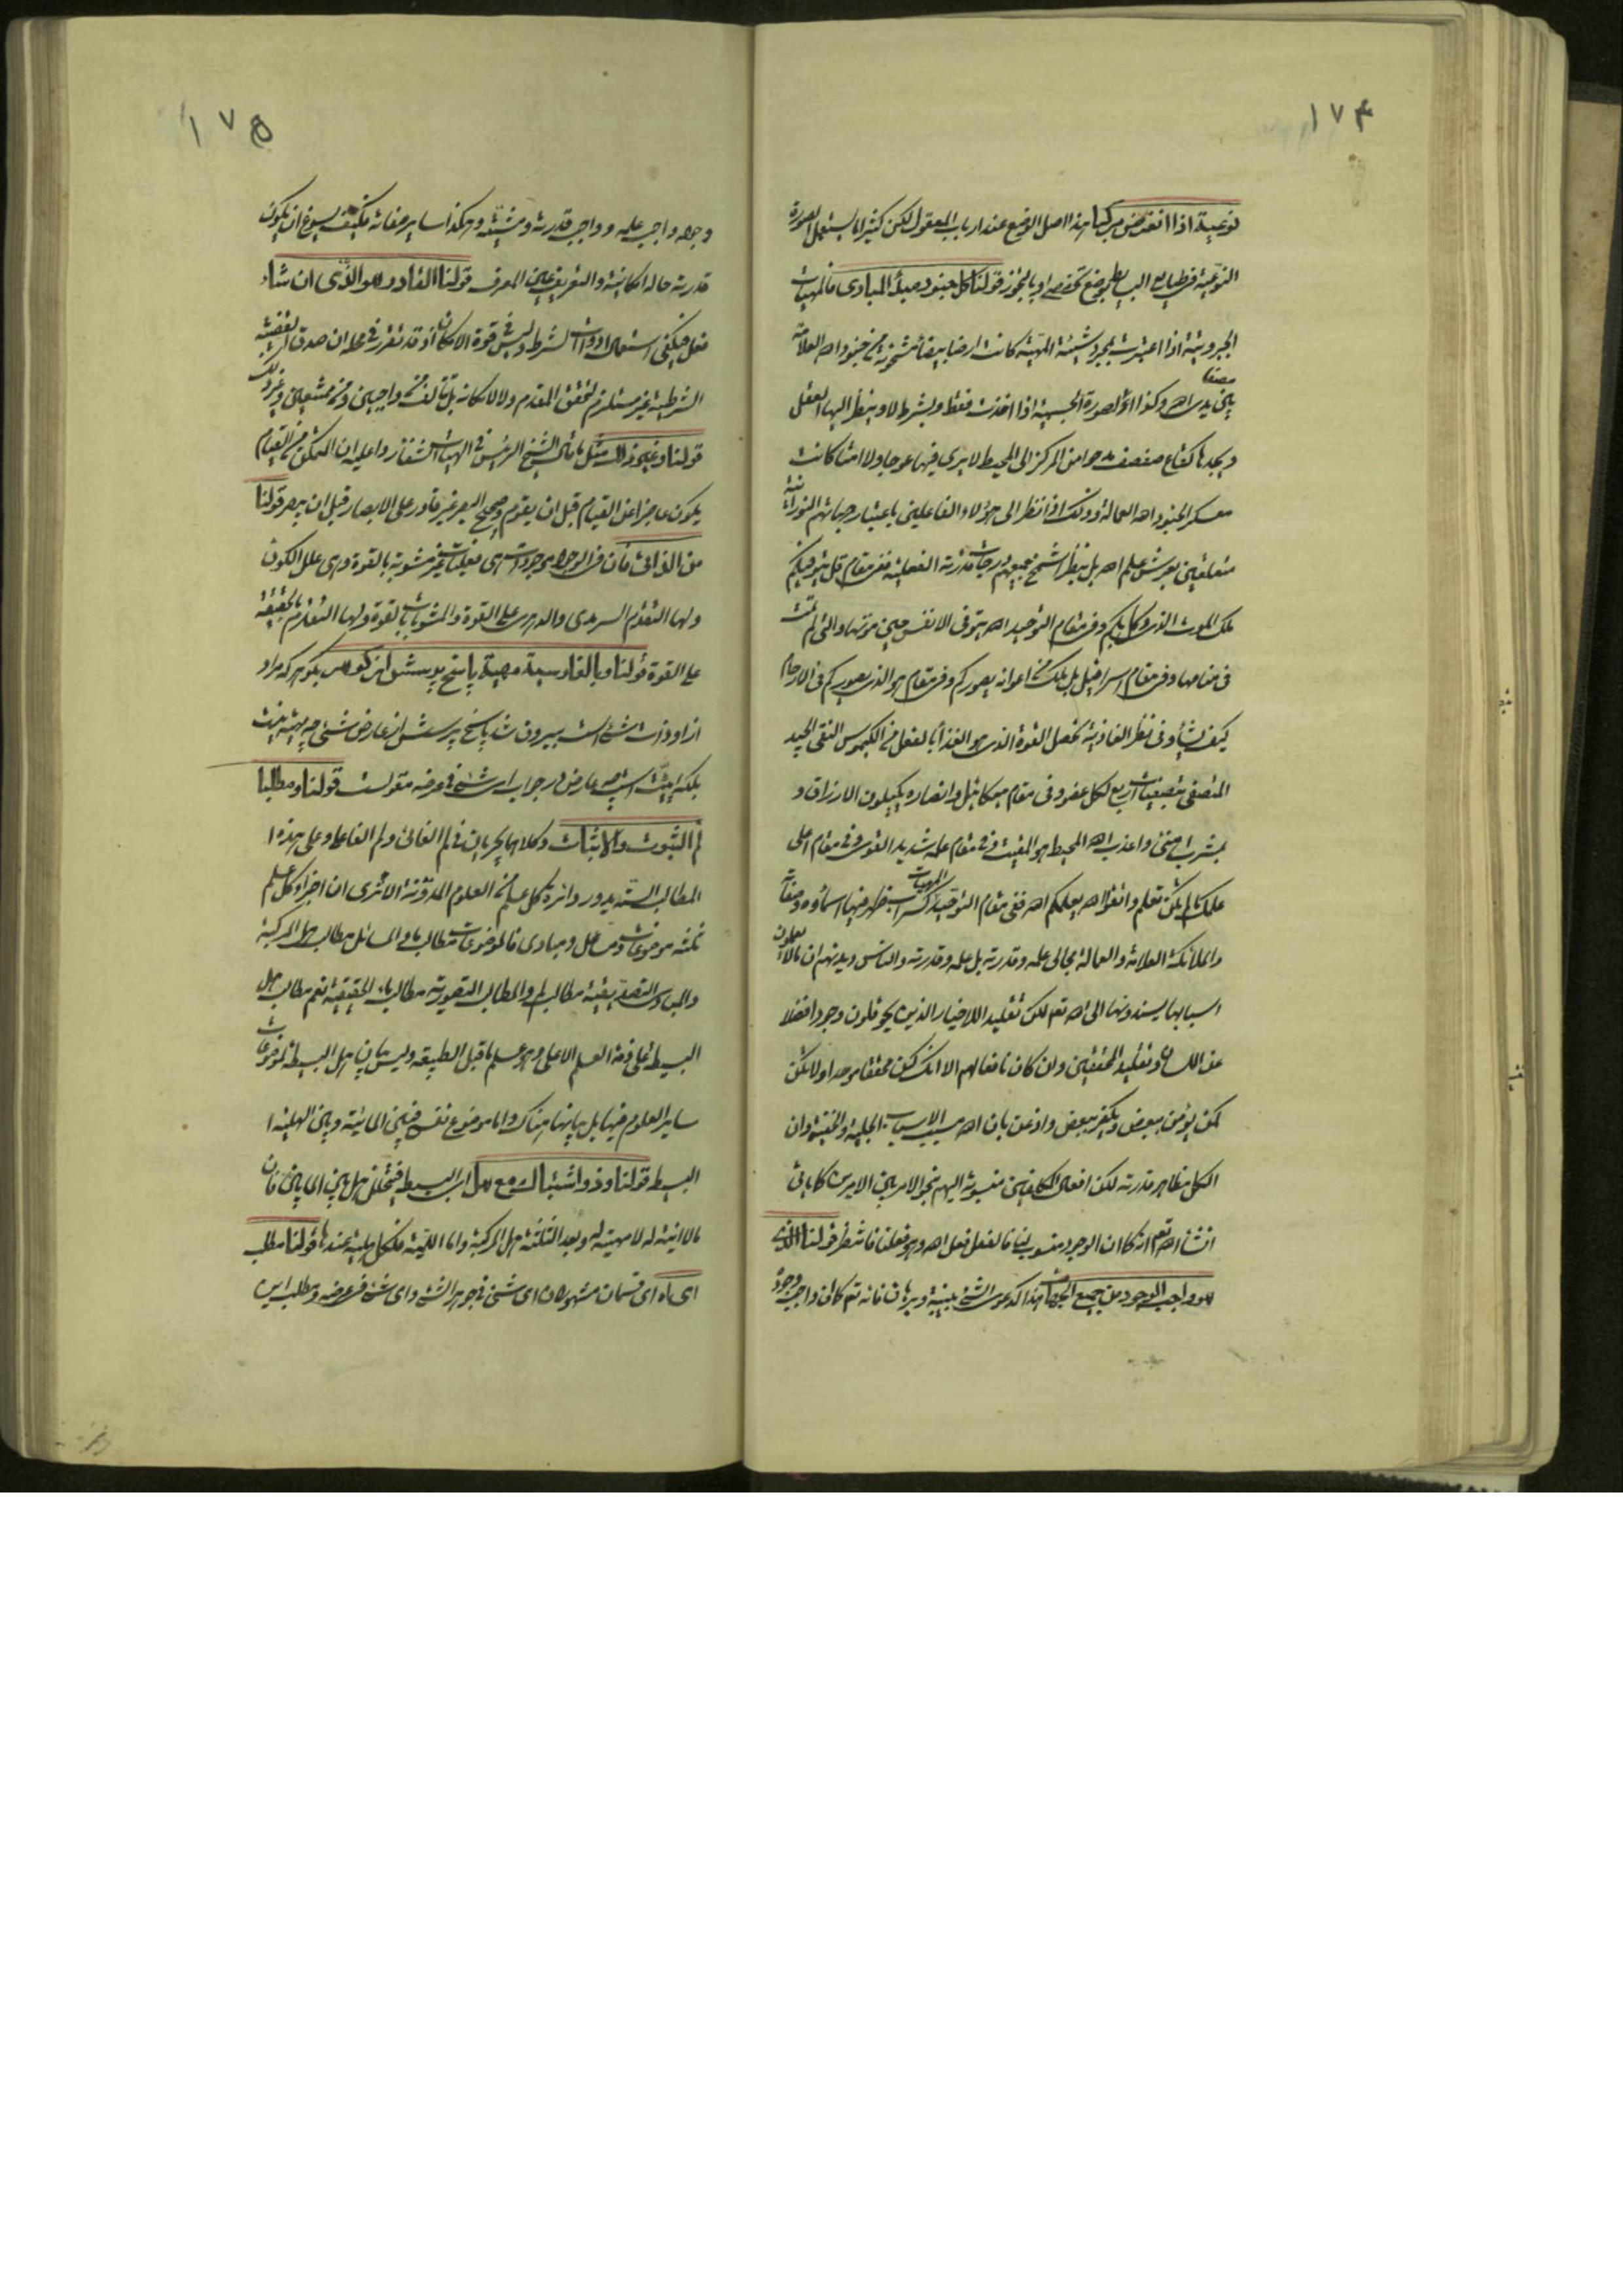 ١٧٤
نوعية اذا انغرض مركبا هذا اصل الوضع عند ارباب المعقول لكن كثيرا ما يستعمل الصورة
النوعية فى طبايع البسايط بوضع تخصصى او بالتجوز قولنا كل جنود مبدأ المبادى فالمهيات
الجبروتية اذا اعتبرت بمجرد شيئية المهية كانت ارضا بيضاء مشحونة من جنود الله العلامة
بين يدى الله وكذا الصورة الجسمية اذا اخذت فقط وبشرط لا وينظر اليها العقل
ويجدها كقاع صفصف من المركز الى المحيط لا يرى فيها عوجا ولا امتا كانت
معسكر الجنود الله العمالة وذلك اذا نظر الى هؤلاء الفاعلين باعتبار جهاتهم النورانية
متعلقين بعرش علم الله بل بنظر اشمخ جميعهم درجات قدرته الفعلية ففى مقام قل يتوفيكم
ملك الموت الذى وكل بكم وفى مقام التوحيد الله يتوفى الانفس حين موتها والتى لم تمت
فى منامها وفى مقام اسرافيل بل ملك من اعوانه يصوركم وفى مقام هو الذى يصوركم فى الارحام
كيف يشاء وفى نظر الغاذية تحصل القوة الذى هو الغذاء بالفعل من الكيموس النقى الجيد
المتصفى بتصفيات اربع لكل عضو وفى مقام ميكائيل وانصاره يكيلون الارزاق و
بمشرب اهنئ واعذب الله المحيط هو المقيت وفى مقام علمه شديد القوى وفى مقام اعلى
علمك ما لم تكن تعلم واتقوا الله يعلمكم الله ففى مقام التوحيد المهيات كسراب ظهر فيها اسماؤه وصفاته
والملائكة العلامة والعمالة مجالى علمه وقدرته بل علمه وقدرته والناس ديدنهم ان ما لا يعلمون
اسبابها يسندونها الى الله تعالى لكن تقليد اللاخيار الذين يحوقلون وجودا فضلا
عن اللسان وتقليد المحققين وان كان نافعا لهم الا انك كن محققا موحدا ولا تكن
كمن يؤمن ببعض ويكفر ببعض واذعن بان الله مسبب الاسباب الجلية والخفية وان
الكل مظاهر قدرته لكن افعال المكلفين منسوبة اليهم بنحو الامر بين الامرين كما ياتى
انشاء الله تعالى انه كما ان الوجود منسوب لنا فالفعل فعل الله وهو فعلنا فانتظر قولنا الذى
هو واجب الوجود من جميع الجهات هذا كدعوى الشئ ببينة وبرهان فانه تعالى كما كان واجب وجود
١٧٥
وجوده واجب علمه وواجب قدرته ومشيته وهكذا ساير صفاته فكيف يسوغ ان يكون
قدرته حالة امكانية والتعريف عين المعرف قولنا القادر هو الذى ان شاء
فعل فيكفى استعمال ادوات الشرط وليس فى قوة الامكان اذ قد تقرر فى محله ان صدق القضية
الشرطية غير مستلزم لتحقق المقدم ولا لامكانه بل تتألف من واجبين ومن ممتنعين وغير ذلك
قولنا وغير ذلك مثل ما قال الشيخ الرئيس فى الهيات الشفاء ردا عليه ان المتمكن من القيام
يكون عاجزا عن القيام قبل ان يقوم وصحيح البصر غير قادر على الابصار قبل ان يبصر قولنا
من الذاتى فان فى الوجود موجودات هى فعليات غير مشوبة بالقوة وهى علل الكون
ولها التقدم السرمدى والدهرى على القوة والمشوبات بالقوة ولها التقدم بالحقيقة
على القوة قولنا وبالفارسية مهية پاسخ پرسش از گوهر بگوهر كه مراد
از او ذات شئ است بيرون شد پاسخ پرسش از عارض شئ چه مهيت نيست
بلكه ايت است چه عارض در جواب اى شئ فى عرضه مقولست قولنا ومطلبا
لم الثبوت والاثبات وكلاهما يجريان فى لم الغائى ولم الفاعلى وعلى هذه ا
المطالب الستة يدور دائرة كل علم من العلوم المدونة الا ترى ان اجزاء كل علم
ثلثة موضوعات ومسائل ومبادى فالموضوعات مطالب ما والمسائل مطالب هل المركبة
والمبادى التصديقية مطالب لم والمطالب التصورية مطالب ماء الحقيقية نعم مطالب هل
البسيطة على ذمة العلم الاعلى وهو علم ما قبل الطبيعة وليس بيان هل البسيطة لموضوعات
ساير العلوم فيها بل بيانها هناك واما موضوع نفسه فبين المائية وبين الهلية ا
البسيطة قولنا وذو اشتباك مع هل اى البسيطة فيتخلل هل بين المايين فان
ما لا انية له لا مهية له وبعد الثلثة هل المركبة واما اللمية فلكل هلية عندها قولنا مطلب
اى ماه اى قسمان مشهوران اى شئ فى جوهر الشئ واى شئ فى عرضه ومطلب اين